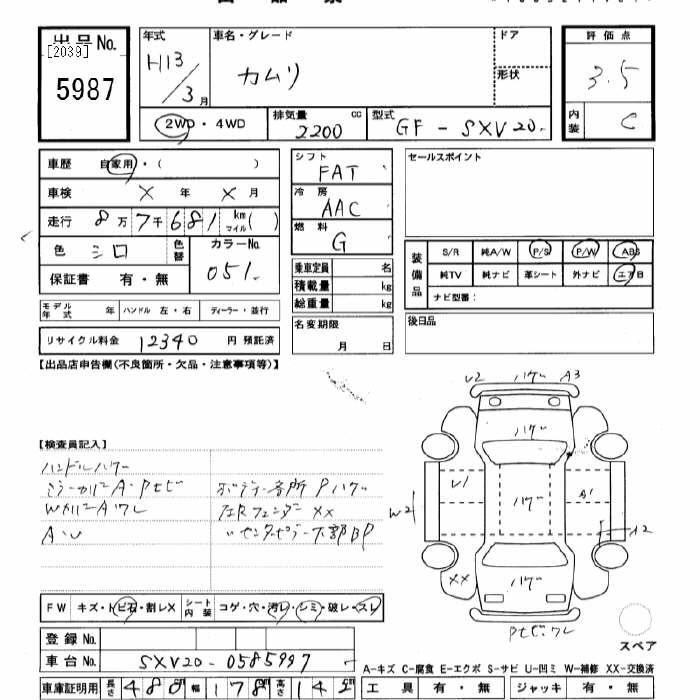 出品No.
[2039]
5987
年式
H13/3月
車名・グレード
カムリ
ドア
形状
評価点
3.5
内装
C
2WD・4WD
排気量 cc
2200
型式
GF-SXV20
車歴 自家用・( )
車検 X 年 X 月
走行 8万7千681 km マイル( )
色 シロ
色替
カラーNo.
051
保証書 有・無
モデル年式 年
ハンドル 左・右
ディーラー・並行
リサイクル料金 12340 円 預託済
シフト
FAT
冷房
AAC
燃料
G
乗車定員 名
積載量 kg
総重量 kg
名変期限
月 日
セールスポイント
装備品
S/R 純A/W P/S P/W ABS
純TV 純ナビ 革シート 外ナビ エアB
ナビ型番:
後日品
【出品店申告欄(不良箇所・欠品・注意事項等)】
【検査員記入】
ハンドルハゲ
ミラーカバーA・Pセビ
ボディー各所 Pハゲ
A・U
V2 ハゲ A3
ハゲ
U1 ハゲ A1
W2
A2
XX ハゲ
FW キズ・トビ石・割レX
シート内装 コゲ・穴・汚レ・シミ・破レ・スレ
登録No.
車台No. SXV20-0585997
車庫証明用 長さ 幅 178 高さ
スペア
A-キズ C-腐食 E-エクボ S-サビ U-凹ミ W-補修 XX-交換済
工具 有・無 ジャッキ 有・無